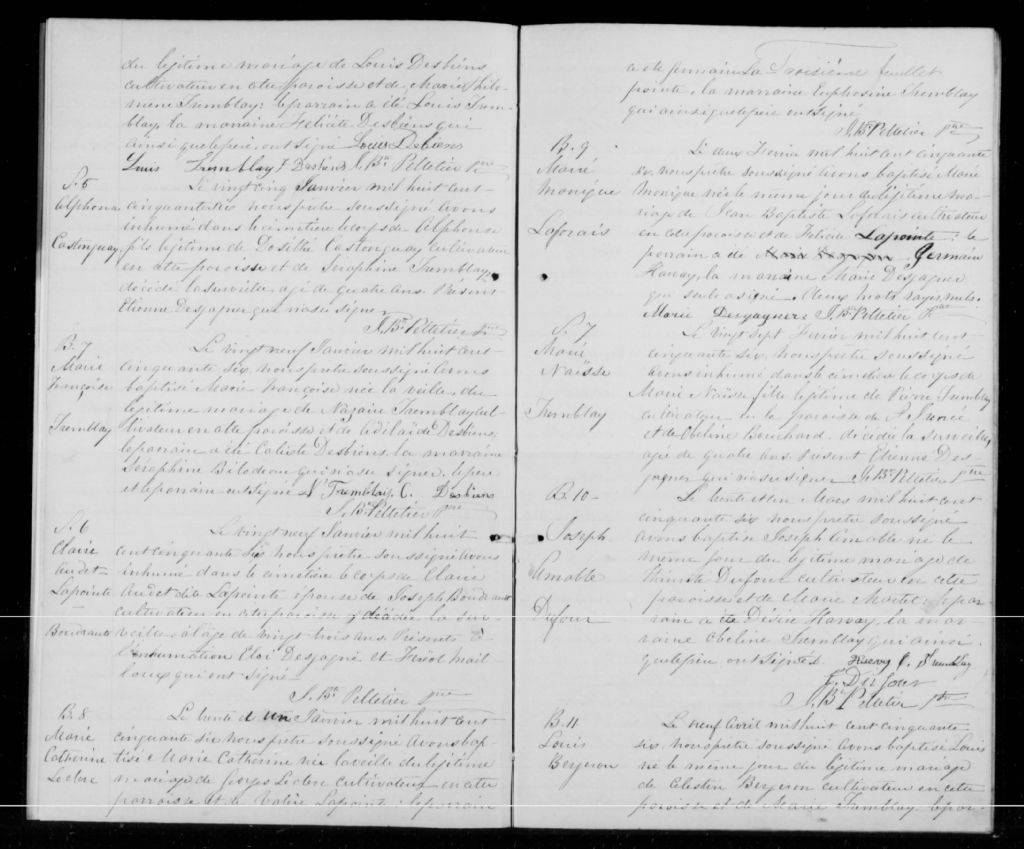 du légitime mariage de Louis Desbiens
cultivateur en cette paroisse et de Marie Philo-
mene Tremblay: le parrain a été Louis Trem-
blay, la marraine Félicité Desbiens qui
ainsi que le père, ont signé Louis Desbiens
Louis Tremblay F Desbiens J. Bte Pelletier Ptre
S. 5
Alphonse
Castonguay
Le vingt cinq Janvier mil huit cent
cinquante six nous prêtre soussigné avons
inhumé dans le cimetière le corps de Alphonse
fils légitime de Dosithé Castonguay cultivateur
en cette paroisse et de Séraphine Tremblay,
décédé la surveille, agé de quatre ans. Présent
Etienne Desgagner qui n'a su signer
J. Bte Pelletier Ptre
B. 7
Marie
Françoise
Tremblay
Le vingt neuf Janvier mil huit cent
cinquante six, nous prêtre soussigné avons
baptisé Marie Françoise née la veille, du
légitime mariage de Nazaire Tremblay cul-
tivateur en cette paroisse et de Adélaïde Desbiens;
le parrain a été Caliste Desbiens la marraine
Séraphine Bilodeau qui n'a su signer, le père
et le parrain ont signé N. Tremblay, C. Desbiens
J. Bte Pelletier Ptre
S. 6
Claire
Audet-
Lapointe
Le vingt neuf Janvier mil huit
cent cinquante six nous prêtre soussigné avons
inhumé dans le cimetière le corps de Claire
Audet dit Lapointe épouse de Joseph
cultivateur en cette paroisse, décédée la sur-
veille, à l'âge de vingt trois ans. Présents à
l'inhumation Eloi Desgagné et Mail-
loux qui ont signé
J. Bte Pelletier ptre
B. 8
Marie
Catherine
Leclerc
Le trente et un Janvier mil huit cent
cinquante six nous prêtre soussigné avons bap-
tisé Marie Catherine née la veille du légitime
mariage de Georges Leclerc cultivateur en cette
parroisse et de Valérie Lapointe; le parrain
a été Germain La Troisième feuillet
pointe, la marraine Euphosine Tremblay
qui ainsi que le père ont signé
J. Bte Pelletier Ptre
B. 9
Marie
Monique
Laforais
Le deux Fevrier mil huit cent cinquante
six, nous prêtre soussigné avons baptisé Marie
Monique née le même jour du légitime ma-
riage de Jean Baptiste Laforais cultivateur
en cette paroisse et de Félicité Lapointe: le
parrain a été Germain
Harvay, la marraine Marie Desgagner
qui seule a signé. deux mots rayés nuls.
Marie Desgagners J. Bte Pelletier Ptre
S. 7
Marie
Naïsse
Tremblay
Le vingt sept Fevrier mil huit cent
cinquante six, nous prêtre soussigné
avons inhumé dans le cimetière le corps de
Marie Naïsse fille légitime de Pierre Tremblay
cultivateur en la paroisse de St Irénée
et de Obeline Bouchard. décédée la surveille,
agée de quatre ans. Présent Etienne Des-
gagner qui n'a su signer J. Bte Pelletier Ptre
B. 10-
Joseph
Aimable
Dufour
Le trente et un Mars mil huit cent
cinquante six nous prêtre soussigné
avons baptisé Joseph Aimable né le
même jour du légitime mariage de
Dufour cultivateur en cette
paroisse et de Marie Martel; le par-
rain a été Désiré Harvay, la mar-
raine Obeline Tremblay qui ainsi
que le père ont signés. Harvy O. Tremblay
J. Dufour
J. Bte Pelletier ptre
B. 11
Louis
Bergeron
Le neuf Avril mil huit cent cinquante
six, nous prêtre soussigné avons baptisé Louis
né le même jour du légitime mariage
de Celestin Bergeron cultivateur en cette
paroisse et de Marie Tremblay le par-